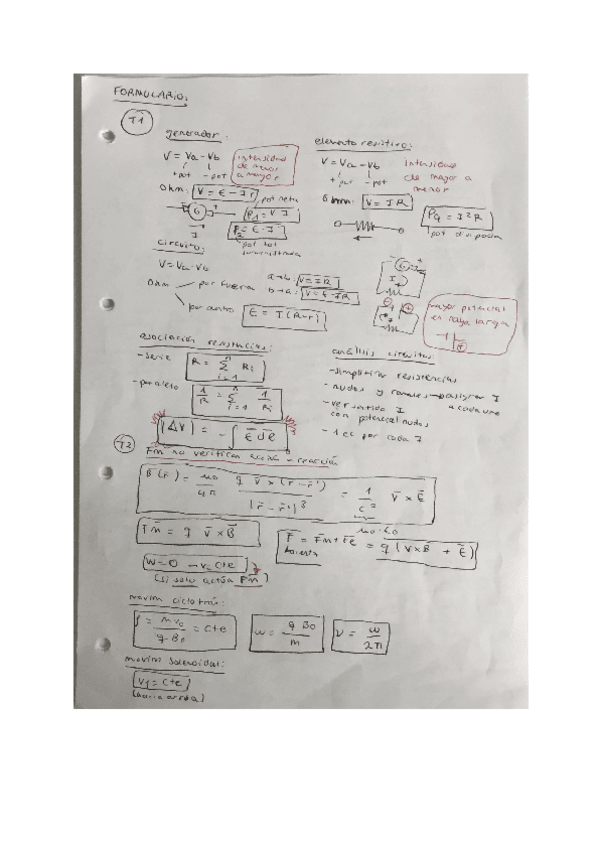 FORMULARIO:
T1
generador:
V = Va - Vb
+ pot - pot
intensidad de menor a mayor
Ohm: V = ε - Ir
pot neta
P1 = V·I
P2 = ε·I
pot tot suministrada
G
I
elemento resistivo:
V = Va - Vb
+ pot - pot
Intensidad de mayor a menor
Ohm: V = IR
P4 = I²R
pot disipada
circuito:
V = Va - Vb
Ohm
por fuera
a→b: V = IR
b→a: V = ε - IR
por dentro
ε = I(R-r)
mayor potencial es raya larga
asociación resistencias:
- serie
R = Σ Ri
i=1
n
- paralelo
1/R = Σ 1/Ri
i=1
n
|ΔV| = -∫ E̅ dl̅
análisis circuitos:
- simplificar resistencias
- nudos y ramales → asignar I a cada uno
- ver sentido I con potencial nudos
- 1 ec por cada I
T2
Fm no verifican acción - reacción
B(r̅) = μ0/4π q v̅ x (r̅ - r̅')/|r̅ - r̅'|³ = 1/c² v̅ x E̅
μ0·ε0
F̅m = q v̅ x B̅
F̅ = F̅m + F̅e = q(v̅ x B̅ + E̅)
lorentz
W=0 → v=cte
(si solo actúa Fm)
movim ciclotrón:
= m v0/q·B0 = cte
ω = q B0/m
ν = ω/2π
movim solenoidal:
= cte
(hacia arriba)